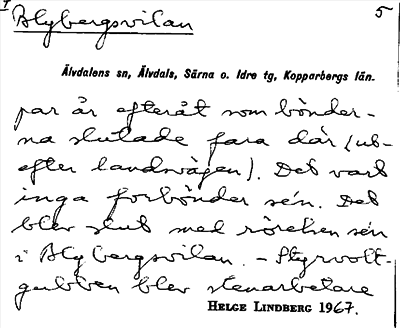 Blybergsvilan
5
Älvdalens sn, Älvdals, Särna o. Idre tg, Kopparbergs län.
par år efteråt som bönder-
na slutade fara där (ut-
efter landsvägen). Det vart
inga forbönder sén. Det
blev slut med rörelsen sén
i Blybergsvilan. – Styrvolt-
gubben blev stenarbetare
HELGE LINDBERG 1967.